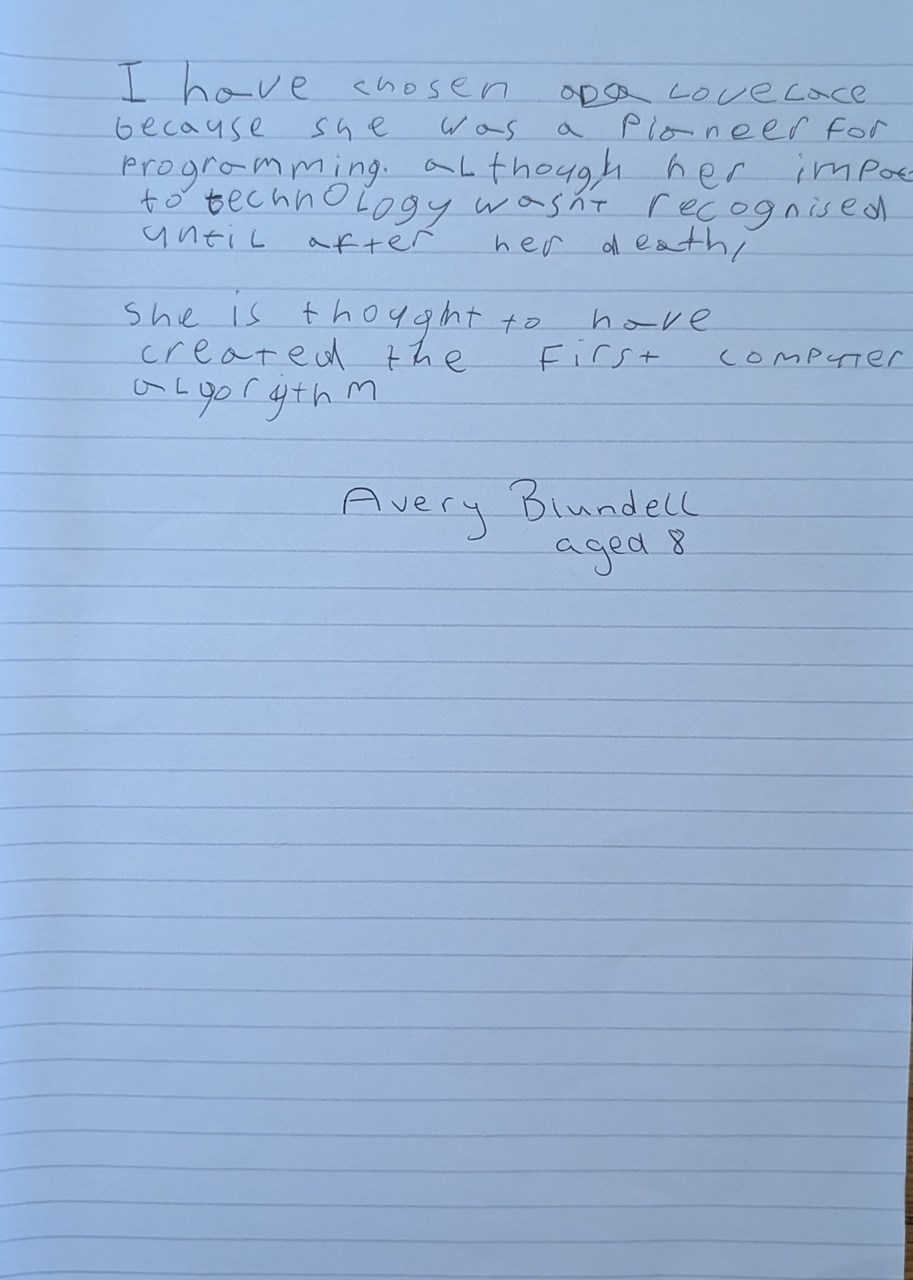 I have chosen ada Lovelace
because she was a Pioneer for
Programming. although her impac
to technology wasn't recognised
until after her death,
She is thought to have
created the First computer
algorythm
Avery Blundell
aged 8